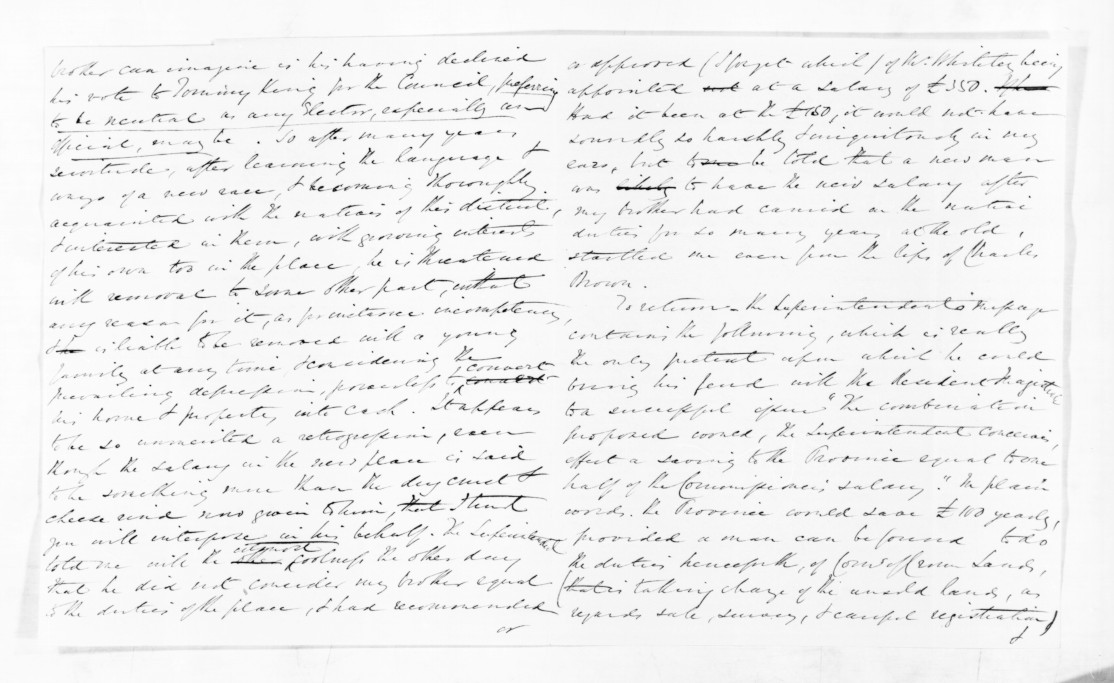 brother can imagine is his having declined
his vote to Tommy King for the Council, preferring
to be neutral as any Elector, especially an
official, may be. So after many years
servitude, after learning the language &
ways of a new race, & becoming thoroughly
acquainted with the natives of this district,
& interested in them, with growing interests
of his own too in the place, he is threatened
with removal to some other part, without
any reason for it, as for instance incompetency,
& is liable to be removed with a young
family at any time, & considering the
prevailing depression, powerless to convert
his home & property into cash. It appears
to be so unmerited a retrogression, even
though the salary in the new place is said
to be something more than the dry crust &
cheese rind now given to him, that I trust
you will interpose in his behalf. The Superintendent
told me with the utmost coolness the other day
that he did not consider my brother equal
to the duties of the place, & had recommended
or
or approved (I forget which) of Mr Whiteley being
appointed not at a salary of £350.
Had it been at the £150, it would not have
sounded so harshly & iniquitously in my
ears, but to be told that a new man
was likely to have the new salary after
my brother had carried on the native
duties for so many years at the old,
startled me even from the lips of Charles
Brown.
To return - the Superintendent's Message
contains the following, which is really
the only pretext upon which he could
bring his feud with the Resident Magistrate
to a successful issue "The combination
proposed would, the Superintendent conceives,
effect a saving to the Province equal to one
half of the Commissioner's salary." In plain
words. the Province would save £100 yearly,
provided a man can be found to do
the duties henceforth, of Coms of Crown Lands,
(that is taking charge of the unsold lands, as
regards sale, survey, & careful registration)
&